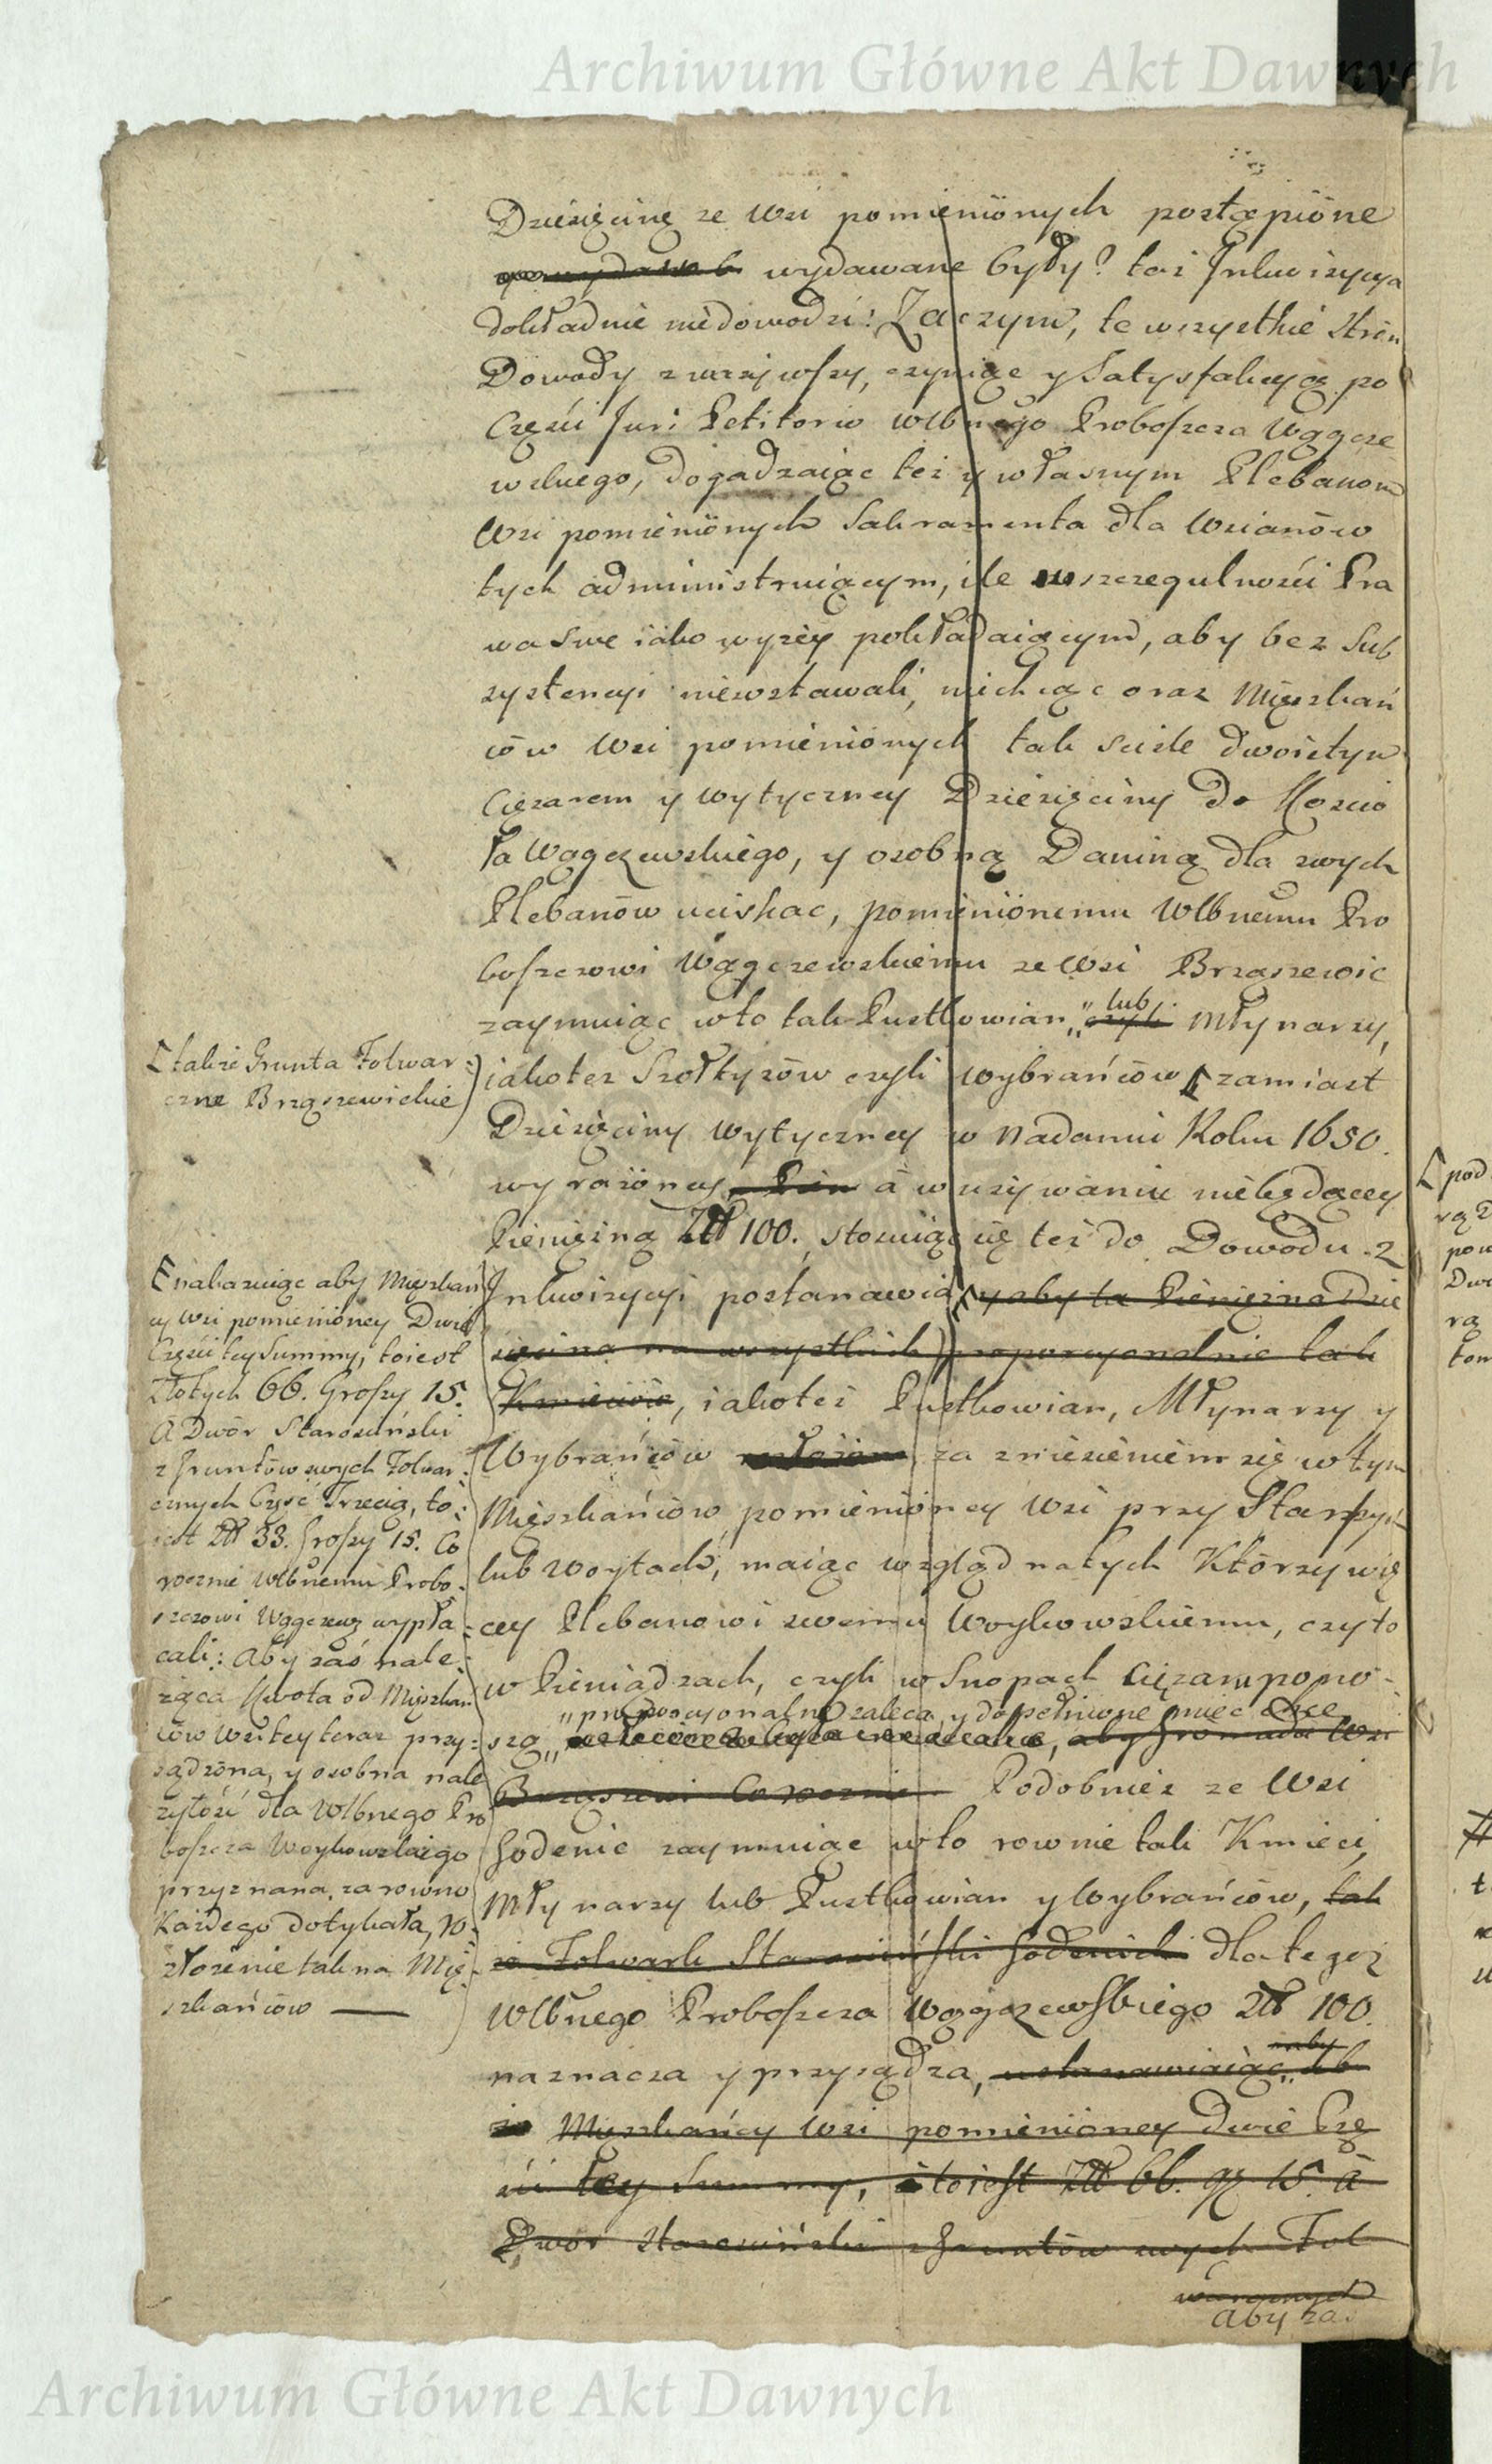 Archiwum Główne Akt Dawnych
Dziesięcinę ze Wsi pomieniönych postąpióne
wydawane były? taż Jnkwizycya
dokładnie niedowodzi: Zaczym, te wszystkie Strön
Dowody zważywszy, czyniąc y Satysfakcyą po
Częśći Juri Petitorio Wlbnego Proboszcza Wągcze
wskiego, dogadzaiąc też y własnym Plebanom
Wsi pomieniönych Sakramenta dla Wsianów
tych administruiącym, ile w szczegulnośći Pra
wa swe iako wyżey pokładaiącym, aby bez Sub
systencyi niezostawali, niechcąc oraz Mięszkań
ców Wsi pomieniönych tak sciśle dwoistym
Ciężarem y wytyczney Dziesięciny do Kościo
ła Wągczewskiego, y osobną Daniną dla swych
Plebanów uciskac, pomieniönemu Wlbnemu Pro
boszczowi Wągczewskiemu ze Wsi Brząszewic
zaymuiąc w to tak Pustkowian „ czyli lub Młynarzy,
iakoteż Szołtysów czyli wybrańców [ zamiast
Dziesięciny wytyczney w nadaniu Roku 1650.
wyrażöney, a w używaniu niebędącey
Pieniężną Złł 100. stosuiąc się też do Dowodu z
Jnkwizycyi postanawia, y aby ta Pieniężna Dzie
sięcina na wszystkich proporcyonalnie tak
Kmieciów, iakoteż Pustkowian, Młynarzy y
Wybrańców za zniesieniem się w tym
Mięszkańców pomieniöney Wsi przy Starszych
lub Woytach, maiąc wzgląd na tych Którzy wię
cey Plebanowi swemu Woykowskiemu, czyto
w Pieniądzach, czyli w Snopach Ciężar pono-
„ proporcyonalną zaleca, y dopełnione miec chce
szą „ aby Gromada Wsi
Brząszewic Corocznie Podobnież ze Wsi
Godenic zaymuiąc w to rownie tak Kmieci,
Młynarzy lub Pustkowian y Wybrańców, tak
że Folwark Starościński Godenicki dla tegoż
Wlbnego Proboszcza Wągczewskiego Złł 100.
naznacza y przysądza, ustanawiaiąc „ aby
Mięszkańcy Wsi pomieniöney dwie Czę
śći tey Summy, toiest Złł 66. gr 15. a
Dwór Starościński z Gruntów swych Fol
warcznych
aby za.
[ także Grunta Folwar:
czne Brząszewickie
[ nakazuiąc aby Mięszkań
cy Wsi pomieniöney Dwie
Częśći tey Summy, toiest
Złotych 66. Groszy 15.
A Dwór Starościński
z Gruntów swych Folwar:
cznych Część Trzecią, to:
iest Złł 33. Groszy 15. Co
rocznie Wlbnemu Probo:
szczowi Wągczewg wypła:
cali: Aby zaś nale:
żąca Kwota od Mięszkań
ców Wsi tey teraz przy:
sądzöna, y osobna nale
żytość dla Wlbnego Pro
boszcza Woykowskiego
przyznana, zarowno
Każdego dotykała, ro:
złożenie tak na Mię:
szkańców —
[ pod
rą
pow
Dwo
rą
tom
Archiwum Główne Akt Dawnych